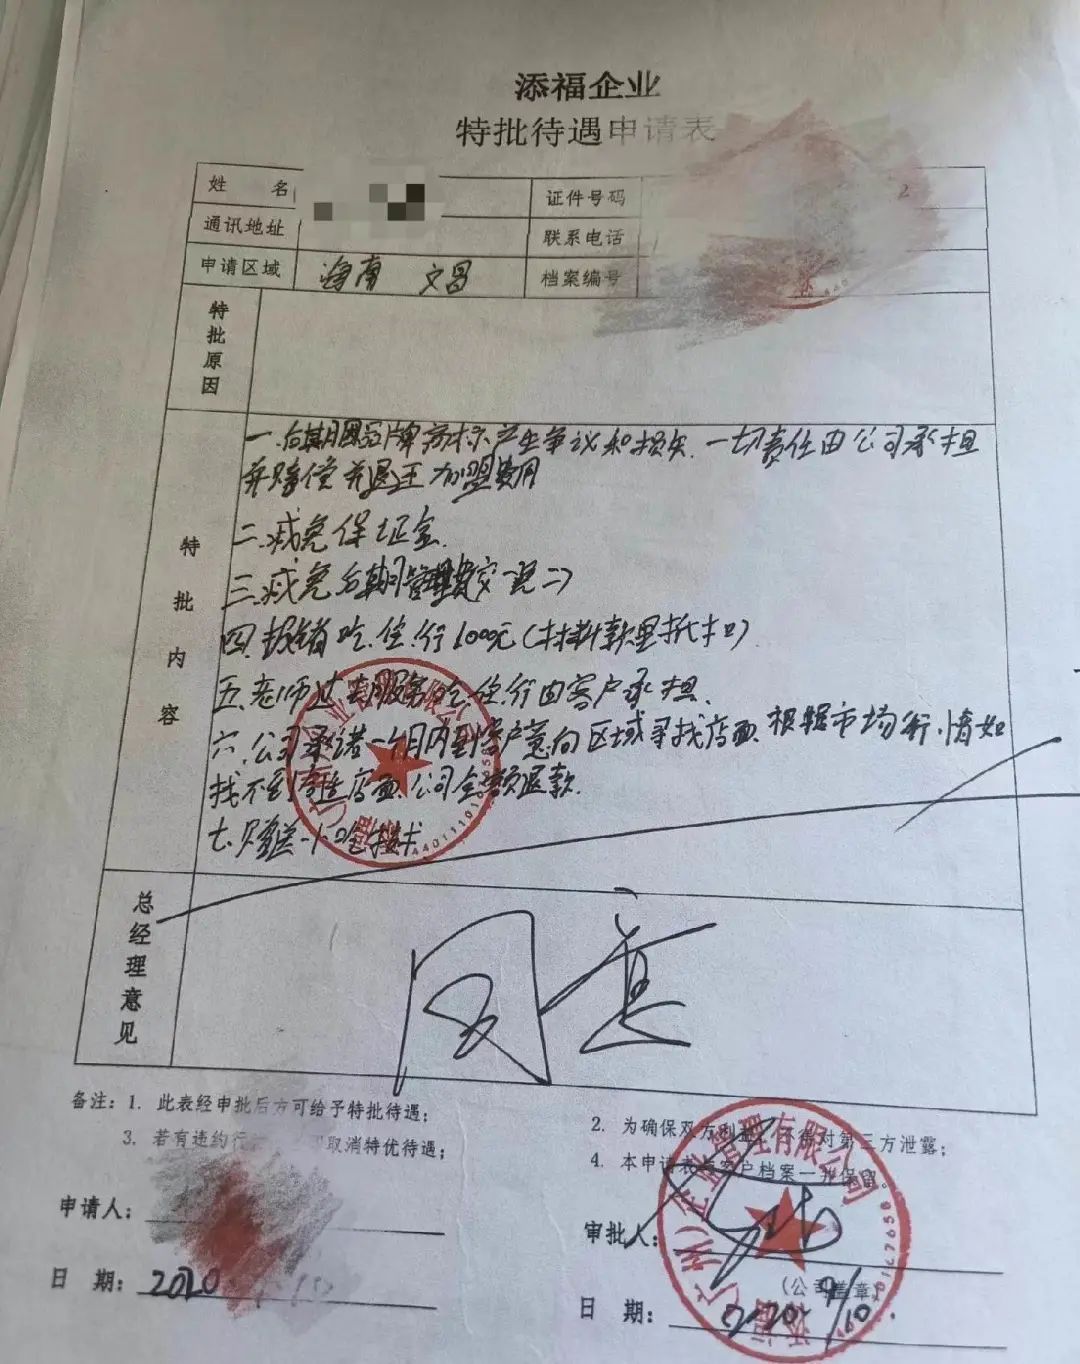 添福企业
特批待遇申请表
姓 名
证件号码 2
通讯地址
联系电话
申请区域 海南 文昌
档案编号
特批原因
特批内容
一.后期因品牌商标产生争议和损失.一切责任由公司承担
并赔偿并退还加盟费用
二.减免保证金.
三.减免后期管理费
四.报销吃.住.行1000元
五.老师过去服务吃.住.行由客户承担.
六.公司承诺一个月内到客户意向区域寻找店面.根据市场行.情如
找不到合适店面.公司全额退款.
七.赠送一个小吃技术
总经理意见
同意
备注：1. 此表经申批后方可给予特批待遇；
2. 为确保双方利益，不得对第三方泄露；
3. 若有违约行 取消特优待遇；
4. 本申请表与客户档案一并保留。
申请人：
审批人：
(公司盖章)
日 期：2020
日 期：2020 9/10.
添福（广州）企业管理有限公司